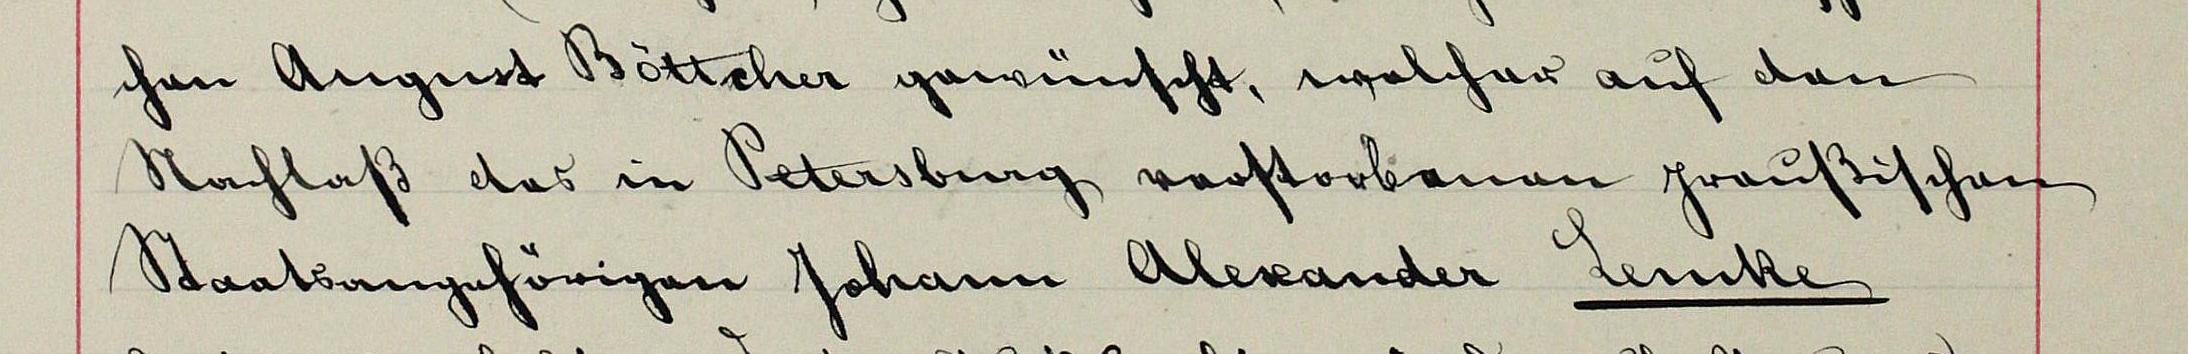 chen August Böttcher gewünscht, welcher auf den
Nachlaß des in Petersburg verstorbenen preußischen
Staatsangehörigen Johann Alexander Lemke